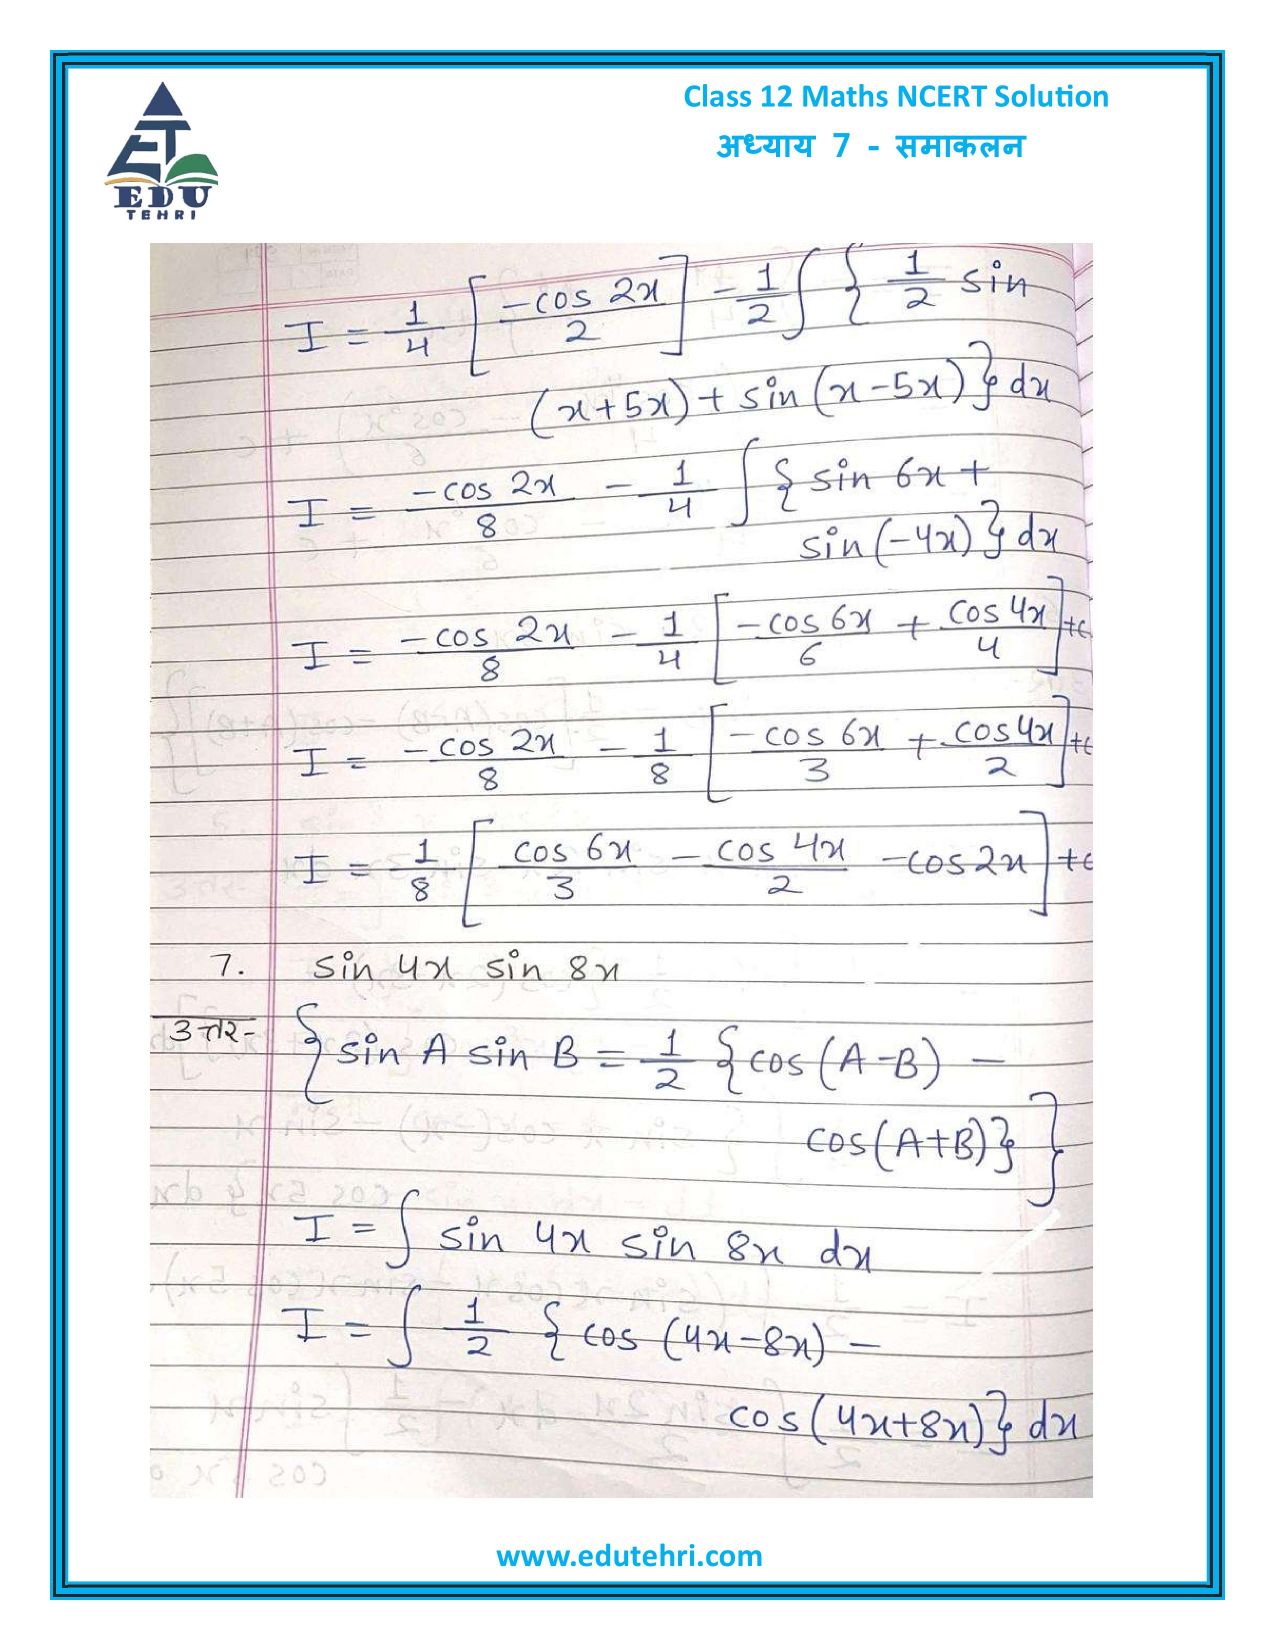 Class 12 Maths NCERT Solution
अध्याय 7 - समाकलन
EDU
TEHRI
I = 1/4 [-cos 2x / 2] - 1/2 ∫ { 1/2 sin
(x+5x) + sin (x-5x) } dx
I = -cos 2x / 8 - 1/4 ∫ { sin 6x +
sin (-4x) } dx
I = -cos 2x / 8 - 1/4 [ -cos 6x / 6 + cos 4x / 4 ] +c
I = -cos 2x / 8 - 1/8 [ -cos 6x / 3 + cos 4x / 2 ] +c
I = 1/8 [ cos 6x / 3 - cos 4x / 2 - cos 2x ] +c
7. sin 4x sin 8x
उत्तर- { sin A sin B = 1/2 { cos (A-B) -
cos (A+B) } }
I = ∫ sin 4x sin 8x dx
I = ∫ 1/2 { cos (4x-8x) -
cos (4x+8x) } dx
www.edutehri.com